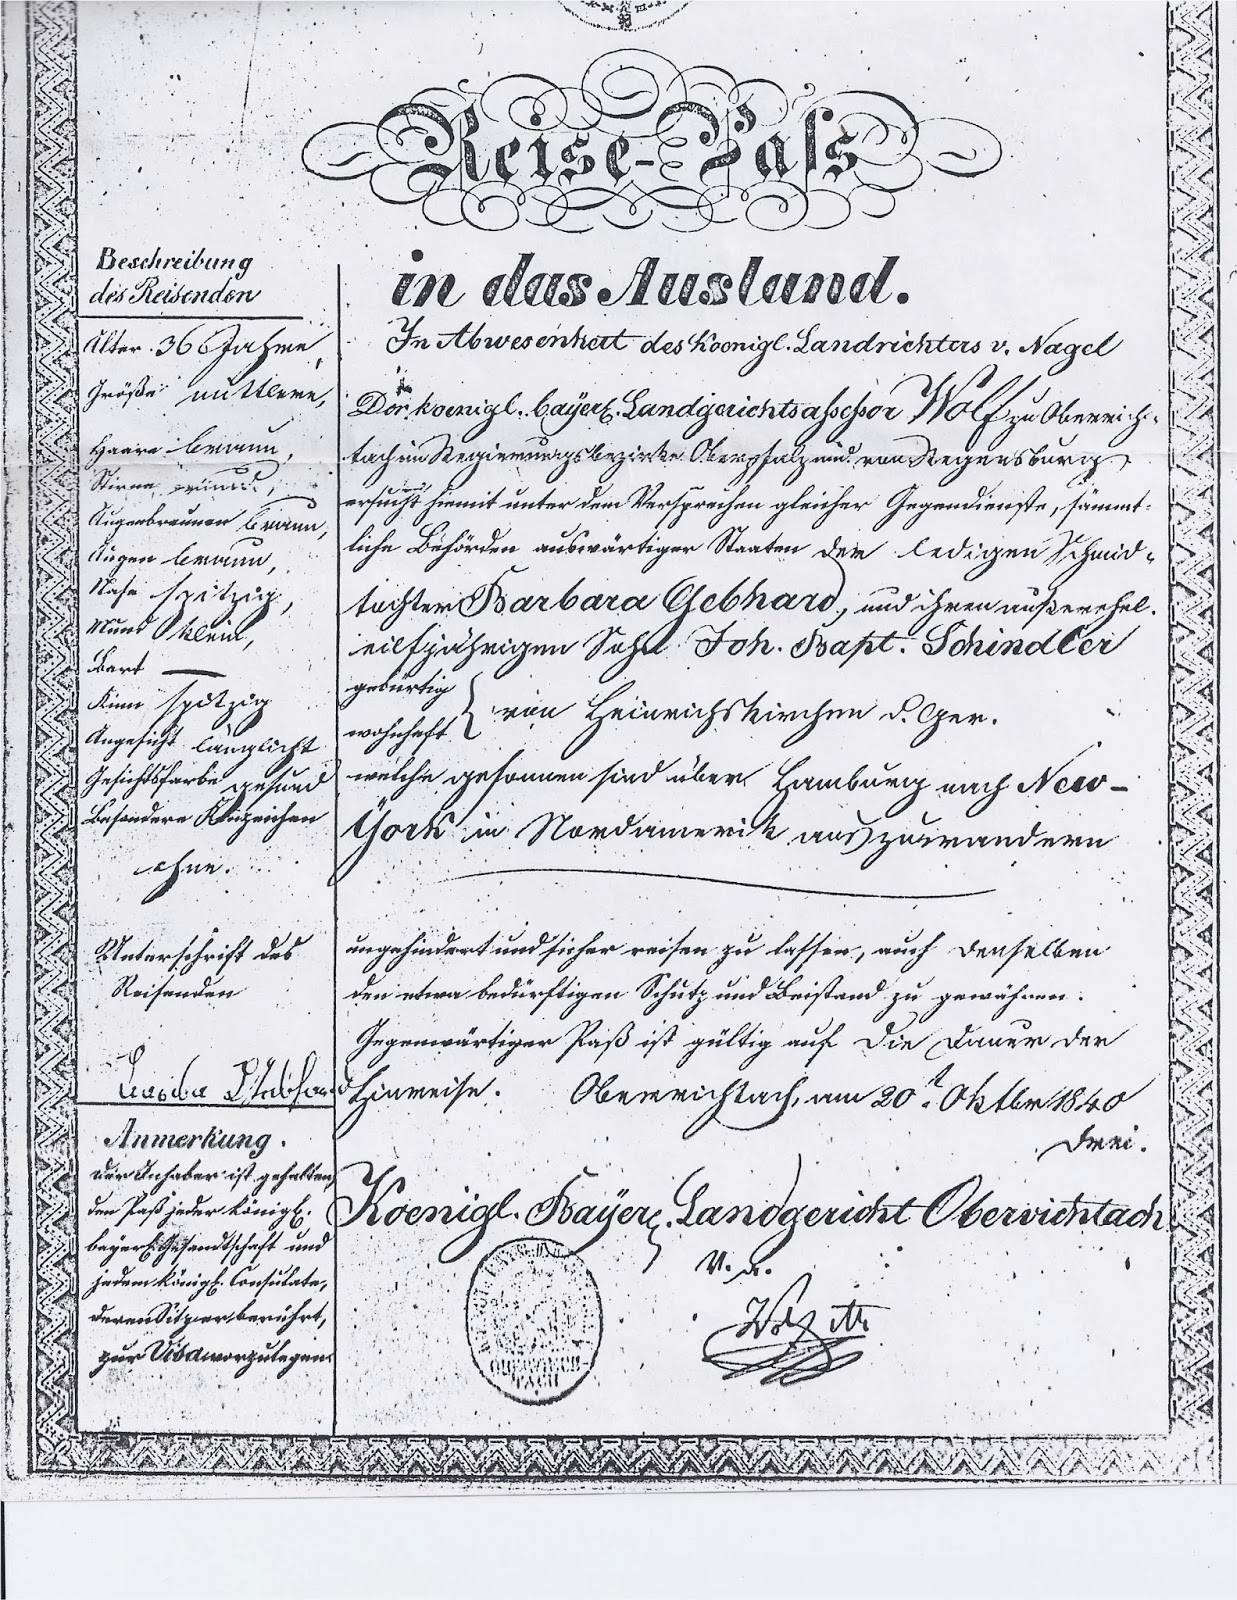 Reise-Paſs
in das Ausland.
Beschreibung
des Reisenden
Alter. 36 Jahre,
Größe mittlere,
Haare braun,
Stirne rund,
Augenbraunen braun,
Augen braun,
Nase spitzig,
Mund klein,
Bart —
Kinn spitzig
Angesicht länglicht
Gesichtsfarbe gesund
Besondere Kennzeichen
ohne.
Unterschrift des
Reisenden
Gebhard
Anmerkung.
Der Inhaber ist gehalten,
den Paß jeder königl.
bayer. Gesandtschaft und
jedem königl. Consulate,
deren Sitz er berührt,
zur Visa vorzulegen.
In Abwesenheit des Koenigl. Landrichters v. Nagel
Der koenigl. bayer. Landgerichtsassessor Wolf zu Oberviech-
tach im Regierungsbezirke Oberpfalz und von Regensburg,
ersucht hiemit unter dem Versprechen gleicher Gegendienste, sämmt-
liche Behörden auswärtiger Staaten der ledigen Schmid-
tochter Barbara Gebhard, und ihren außerehel.
eilfjährigen Sohn Joh. Bapt. Schindler
gebürtig
wohnhaft } von Heinrichskirchen d. Ger.
welche gesonnen sind über Hamburg nach New-
York in Nordamerika auszuwandern
ungehindert und sicher reisen zu lassen, auch denselben
den etwa bedürftigen Schutz und Beistand zu gewähren.
Gegenwärtiger Paß ist gültig auf die Dauer der
Hinreise. Oberviechtach, am 20t. Oktbr 1840
drei.
Koenigl. Bayer. Landgericht Oberviechtach
V. a.